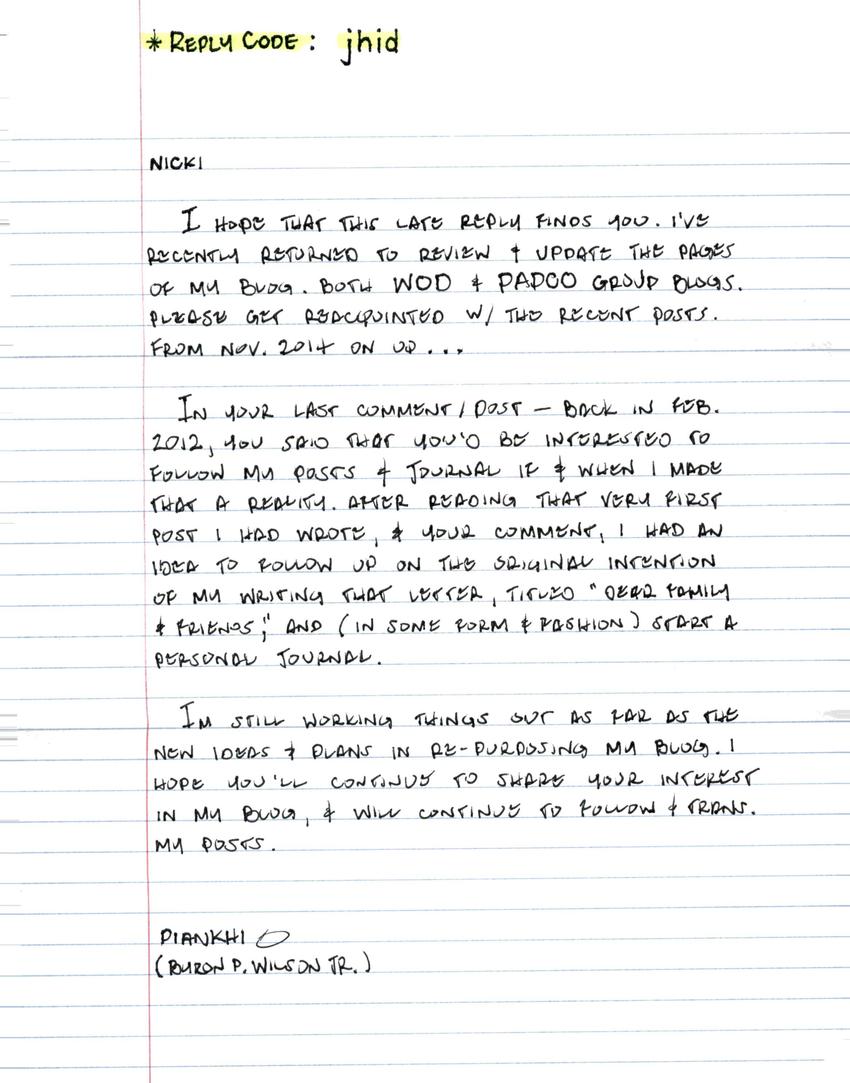 * REPLY CODE: jhid
NICKI
I HOPE THAT THIS LATE REPLY FINDS YOU. I'VE
RECENTLY RETURNED TO REVIEW & UPDATE THE PAGES
OF MY BLOG. BOTH WOD & PADCO GROUP BLOGS.
PLEASE GET REACQUINTED W/ THE RECENT POSTS.
FROM NOV. 2014 ON UP...
IN YOUR LAST COMMENT/POST - BACK IN FEB.
2012, YOU SAID THAT YOU'D BE INTERESTED TO
FOLLOW MY POSTS & JOURNAL IF & WHEN I MADE
THAT A REALITY. AFTER READING THAT VERY FIRST
POST I HAD WROTE, & YOUR COMMENT, I HAD AN
IDEA TO FOLLOW UP ON THE ORIGINAL INTENTION
OF MY WRITING THAT LETTER, TITLED "DEAR FAMILY
& FRIENDS;" AND (IN SOME FORM & FASHION) START A
PERSONAL JOURNAL.
IM STILL WORKING THINGS OUT AS FAR AS THE
NEW IDEAS & PLANS IN RE-PURPOSING MY BLOG. I
HOPE YOU'LL CONTINUE TO SHARE YOUR INTEREST
IN MY BLOG, & WILL CONTINUE TO FOLLOW & TRANS.
MY POSTS.
PIANKHI
(BYRON P. WILSON JR.)